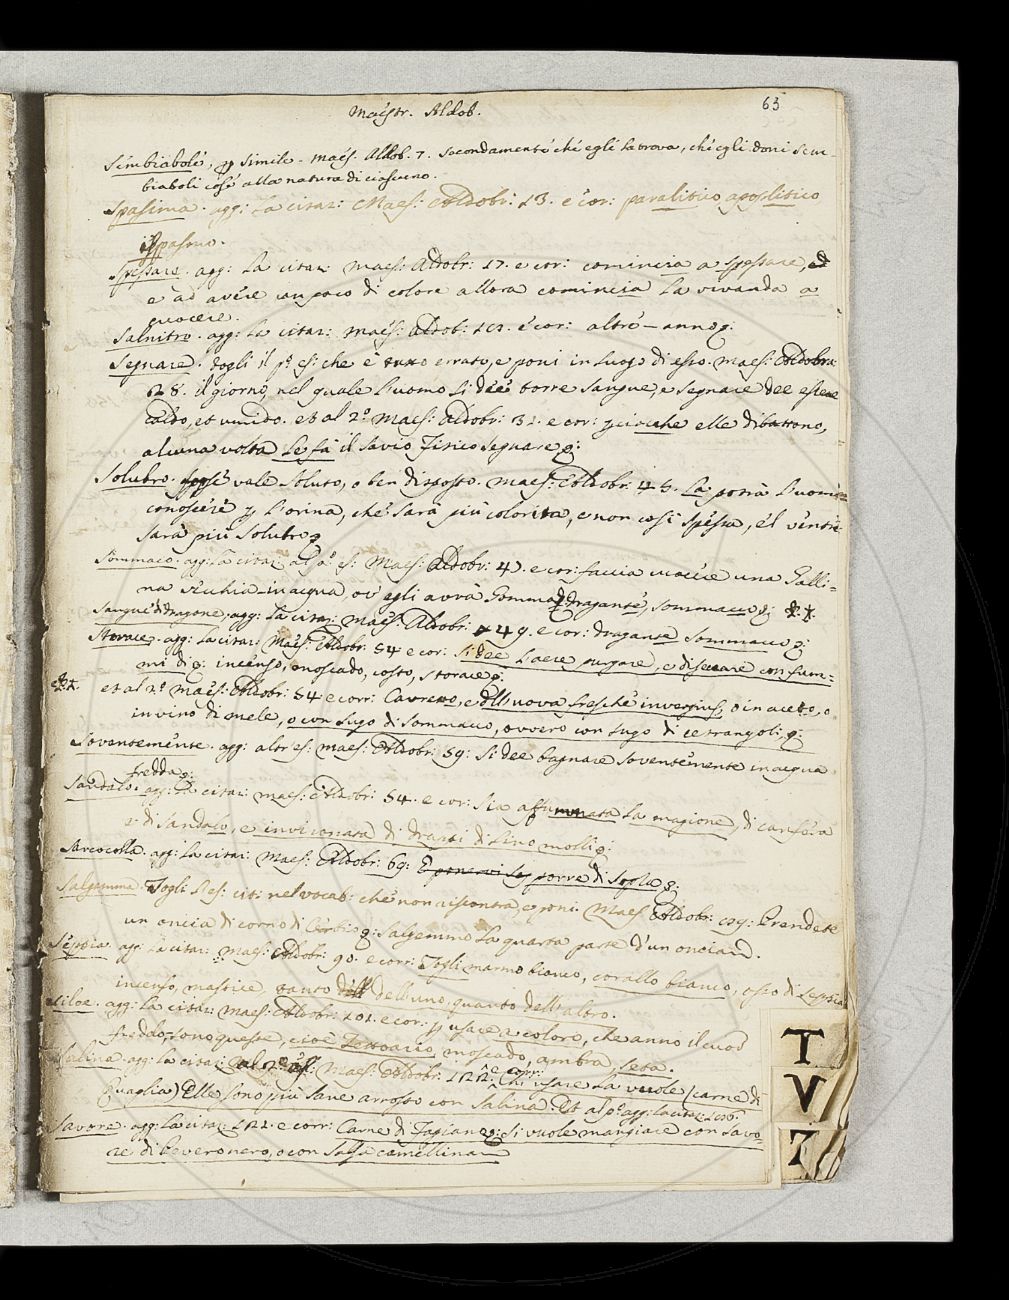 Maestr. Aldob.
63
Sembiabole, p simile. Maes. Aldob. 7. Secondamente ch'egli la trova, ch'egli doni sem-
biaboli cose alla natura di ciascuno.
Spasima. agg: la citaz: Maes: Aldobr: 13. e cor: paralitico apoplitico
spasimo.
Spessare. agg: la citaz: Maes: Aldobr: 17. e cor: comincia a spessare, ed
e ad avere un poco di colore allora comincia la vivanda a
cuocere.
Salnitro. agg: la citaz: Maes: Aldob: 101. e cor: altre anno
Segnare. Togli il p.º es: che è tutto errato, e poni in luogo di esso. Maes: Aldobr:
28. il giorno, nel quale l'uomo si dee torre sangue, e segnare dee essere
caldo, et umido. et al 2.º Maes: Aldobr: 31. e cor: elle dibattono,
alcuna volta le fa il savio Fisico segnare
Solubro. vale soluto, o ben disposto. Maes: Aldobr: 43. La porrà l'uomo
conoscere p l'orina, che sarà più colorita, e non così spessa, e'l ventre
sarà più solubro
Sommaco. agg: la citaz: al p.º es: Maes: Aldobr: 47. e cor: faccia cuocere una Galli-
na vecchia in acqua, ov'egli avrà Gomma dragante, sommacco
Sangue di dragone. agg: la citaz: Maes: Aldobr: 49. e cor: dragante sommacco
Storace. agg: la citaz: Maes: Aldobr: 54 e cor: si dee l'aere purgare, e diseccare con fum-
mi di incenso, moscado, costo, storace
et al 2.º Maes: Aldobr: 54 e corr: Cavrere, e dell'uova fresche o in aceto, o
in vino di mele, o con sugo di sommacco, ovvero con sugo di cetrangoli.
Soventemente. agg: altr es: Maes: Aldobr: 59: si dee bagnare soventemente in acqua
fredda
Sandalo. agg: la citaz: Maes: Aldobr: 54. e cor: sia affummata la magione, di canfora
e di sandalo, e invironata di drappi di lino molli
Sarcocolla. agg: la citaz: Maes: Aldobr: 69: porre di sopra
Salgemma. Togli l'es: cit: nel vocab: che non riscontra, e poni: Maes: Aldobr: 109: Prendete
un oncia di corno di Cerbio salgemmo la quarta parte d'un oncia.
Seppia. agg: la citaz: Maes: Aldobr: 90: e corr: Togli marmo bianco, corallo bianco, osso di seppia
incenso, mastice, tanto dell'uno, quanto dell'altro.
Siloe. agg: la citaz: Maes: Aldobr: 101. e cor: p usare a coloro, che anno il cuor
freddo, sono queste, cioè moscado, ambra, seta.
Salina. agg: la citaz: al 2.º es: Maes: Aldobr: 121 e corr: Chi usare la vuole (carne di
Quaglia) Elle sono più sane arrosto con salina. Et al p.º agg: la citaz: 120.
Savore. agg: la citaz: 122. e corr: Carne di Fagiano si vuole mangiare con savo-
re di pevero nero, o con salsa camellina
T
V
7